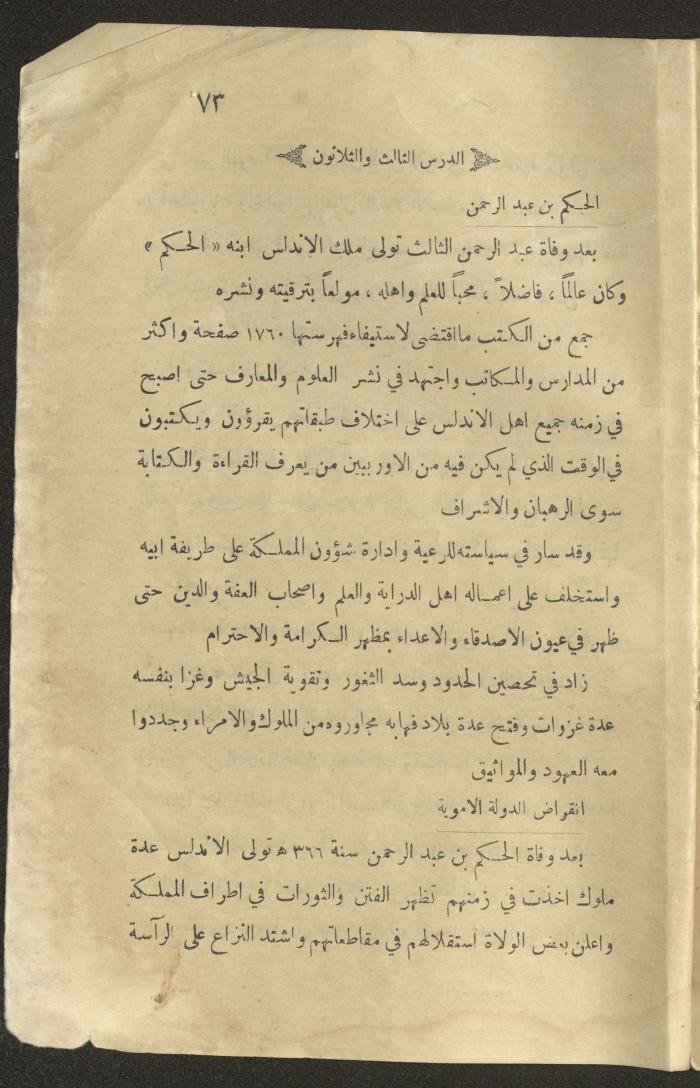 ٧٣
الدرس الثالث والثلاثون
الحكم بن عبد الرحمن
بعد وفاة عبد الرحمن الثالث تولى ملك الاندلس ابنه « الحكم »
وكان عالماً ، فاضلاً ، محباً للعلم واهله ، مولعاً بترقيته ونشره
جمع من الكتب مااقتضى لاستيفاء فهرستها ١٧٦٠ صفحة واكثر
من المدارس والمكاتب واجتهد في نشر العلوم والمعارف حتى اصبح
في زمنه جميع اهل الاندلس على اختلاف طبقاتهم يقرؤون ويكتبون
في الوقت الذي لم يكن فيه من الاوربيين من يعرف القراءة والكتابة
سوى الرهبان والاشراف
وقد سار في سياسته للرعية وادارة شؤون المملكة على طريقة ابيه
واستخلف على اعماله اهل الدراية والعلم واصحاب العفة والدين حتى
ظهر في عيون الاصدقاء والاعداء بمظهر الكرامة والاحترام
زاد في تحصين الحدود وسد الثغور وتقوية الجيش وغزا بنفسه
عدة غزوات وفتح عدة بلاد فهابه مجاوروه من الملوك والامراء وجددوا
معه العهود والمواثيق
انقراض الدولة الاموية
بعد وفاة الحكم بن عبد الرحمن سنة ٣٦٦ ه تولى الاندلس عدة
ملوك اخذت في زمنهم تظهر الفتن والثورات في اطراف المملكة
واعلن بعض الولاة استقلالهم في مقاطعاتهم واشتد النزاع على الرآسة